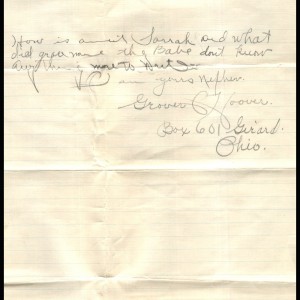 How is aunt Sarrah and what
did you name the Babe don't know
any thing more to
I am yours Nephew
Grover C Hoover.
Box 601 Girard.
Ohio.